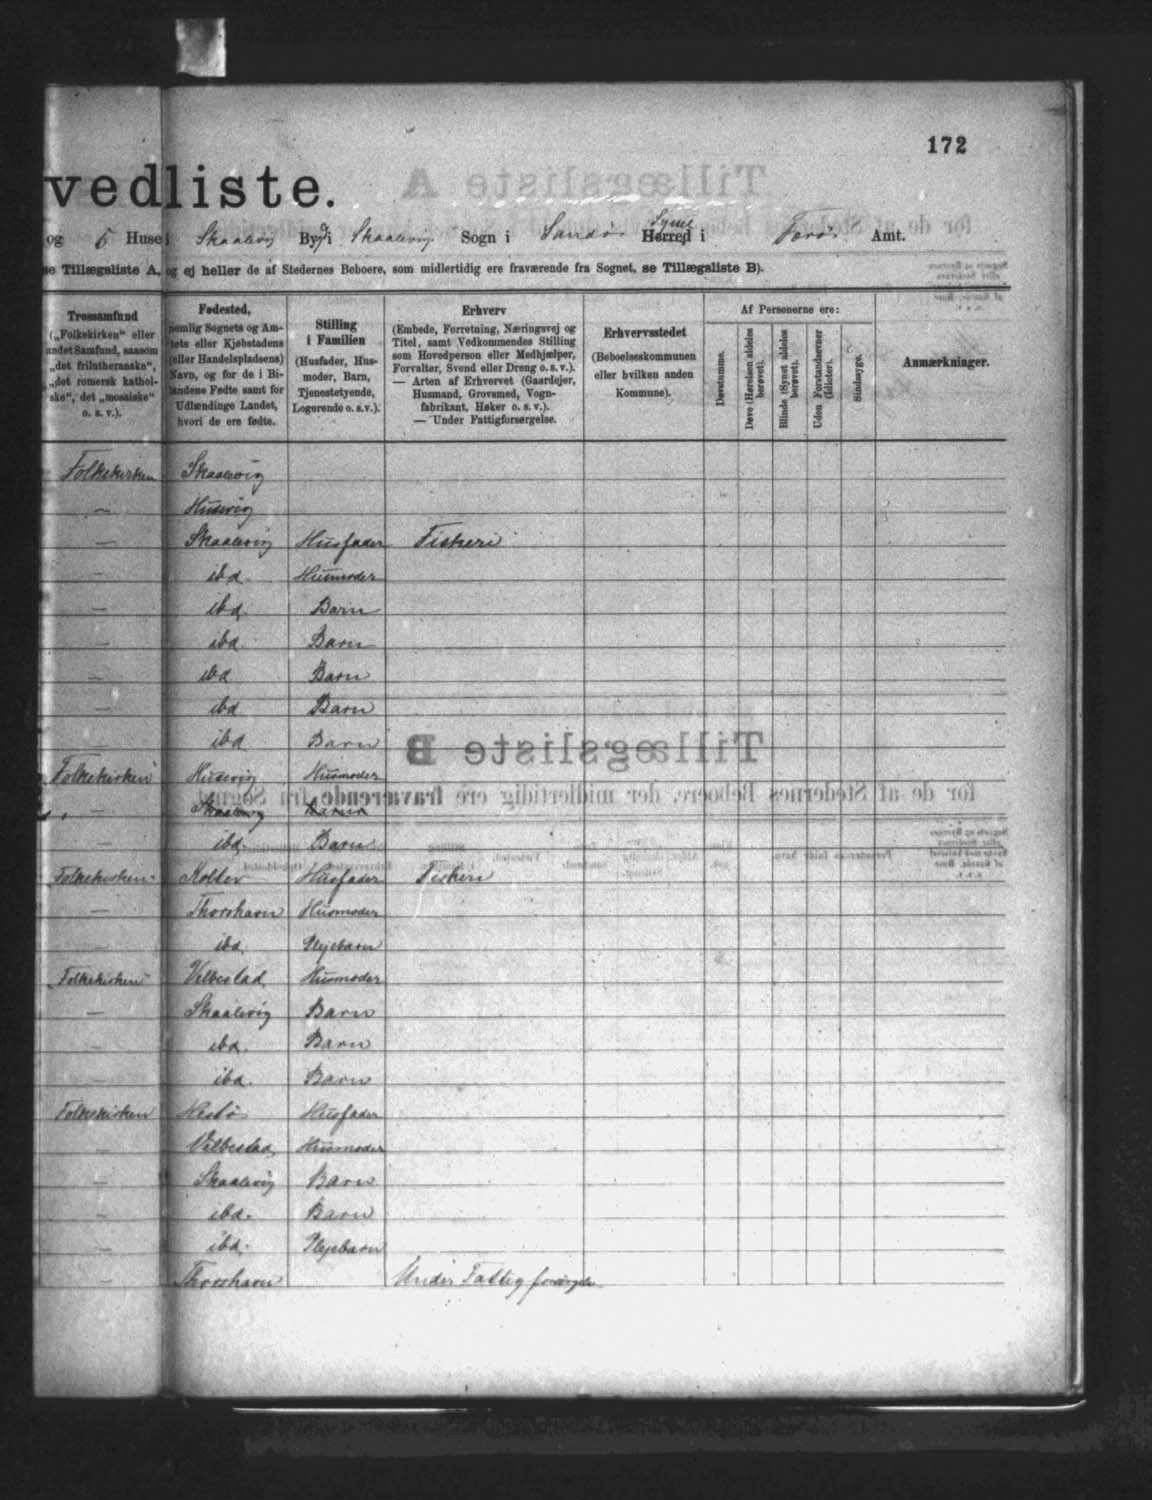 172
vedliste.
og 5 Huse i Skaalevig By i Skaalevig Sogn i Sandø Syssel Herred i Færø Amt.
se Tillægsliste A, og ej heller de af Stedernes Beboere, som midlertidig ere fraværende fra Sognet, se Tillægsliste B).
Trossamfund
(„Folkekirken“ eller
andet Samfund, saasom
„det frilutheranske“,
„det romersk kathol-
ske“, det „mosaiske“
o. s. v.).
Fødested,
nemlig Sognets og Am-
tets eller Kjøbstadens
(eller Handelspladsens)
Navn, og for de i Bi-
landene Fødte samt for
Udlændinge Landet,
hvori de ere fødte.
Stilling
i Familien
(Husfader, Hus-
moder, Barn,
Tjenestetyende,
Logerende o. s. v.).
Erhverv
(Embede, Forretning, Næringsvej og
Titel, samt Vedkommendes Stilling
som Hovedperson eller Medhjælper,
Forvalter, Svend eller Dreng o. s. v.).
— Arten af Erhvervet (Gaardejer,
Husmand, Grovsmed, Vogn-
fabrikant, Høker o. s. v.).
— Under Fattigforsørgelse.
Erhvervsstedet
(Beboelseskommunen
eller hvilken anden
Kommune).
Af Personerne ere:
Døvstumme.
Døve (Hørelsen aldeles
berøvet).
Blinde (Synet aldeles
berøvet).
Uden Forstandsevner
(Idioter).
Sindssyge.
Anmærkninger.
Folkekirken Skaalevig
— Husevig
— Skaalevig Husfader Fiskeri
— ibd. Husmoder
— ibd. Barn
— ibd. Barn
— ibd Barn
— ibd. Barn
— ibd Barn
Folkekirken Husevig Husmoder
— Skaalevig Barn
— ibd. Barn
Folkekirken Kolter Husfader Fiskeri
— Thorshavn Husmoder
ibd. Plejebarn
Folkekirken Velbestad Husmoder
— Skaalevig Barn
— ibd. Barn
— ibd. Barn
Folkekirken Hestø Husfader
— Velbestad Husmoder
— Skaalevig Barn
— ibd. Barn
— ibd. Plejebarn
— Thorshavn Under Fattigforsørgelse